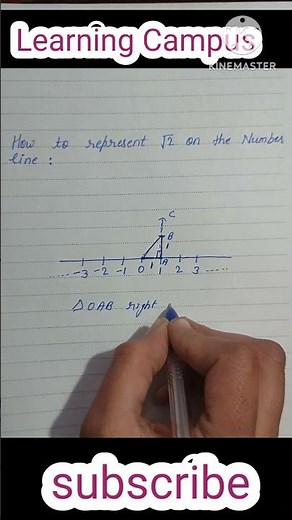 Learning Campus
KINEMASTER
How to represent √2 on the Number
line :
C
B
1
1 A
-3 -2 -1 0 1 2 3
△OAB right
subscribe